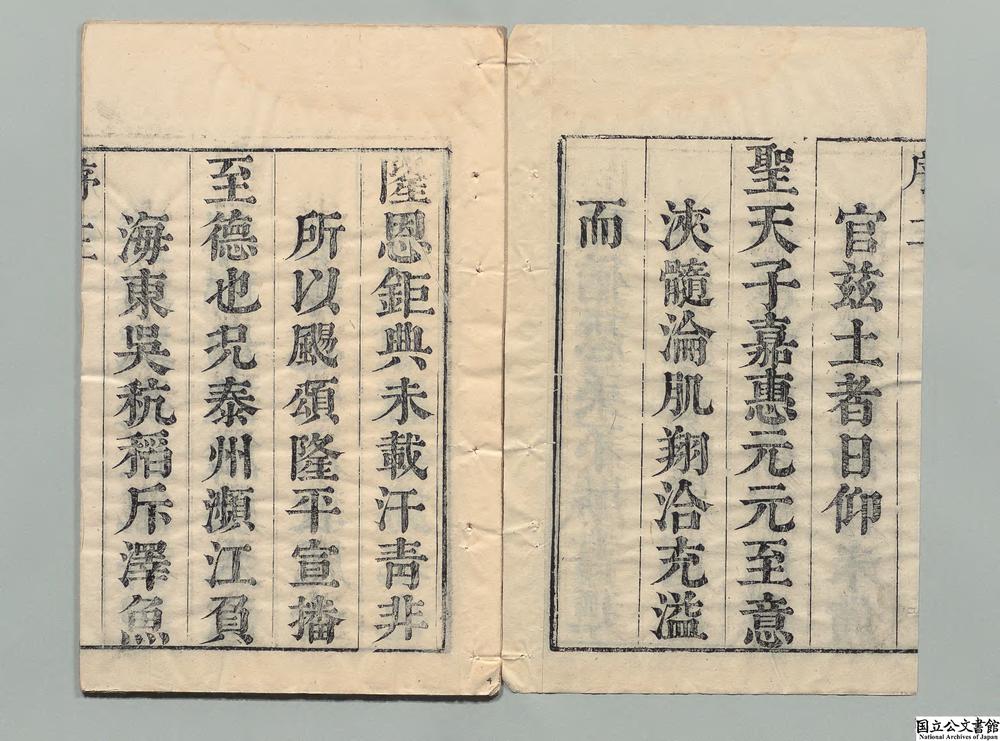 官茲土者日仰
聖天子嘉惠元元至意
浹髓淪肌翔洽充溢
而
隆恩鉅典未載汗青非
所以颺頌隆平宣播
至德也況泰州瀕江負
海東吳秔稻斥澤魚
国立公文書館
National Archives of Japan